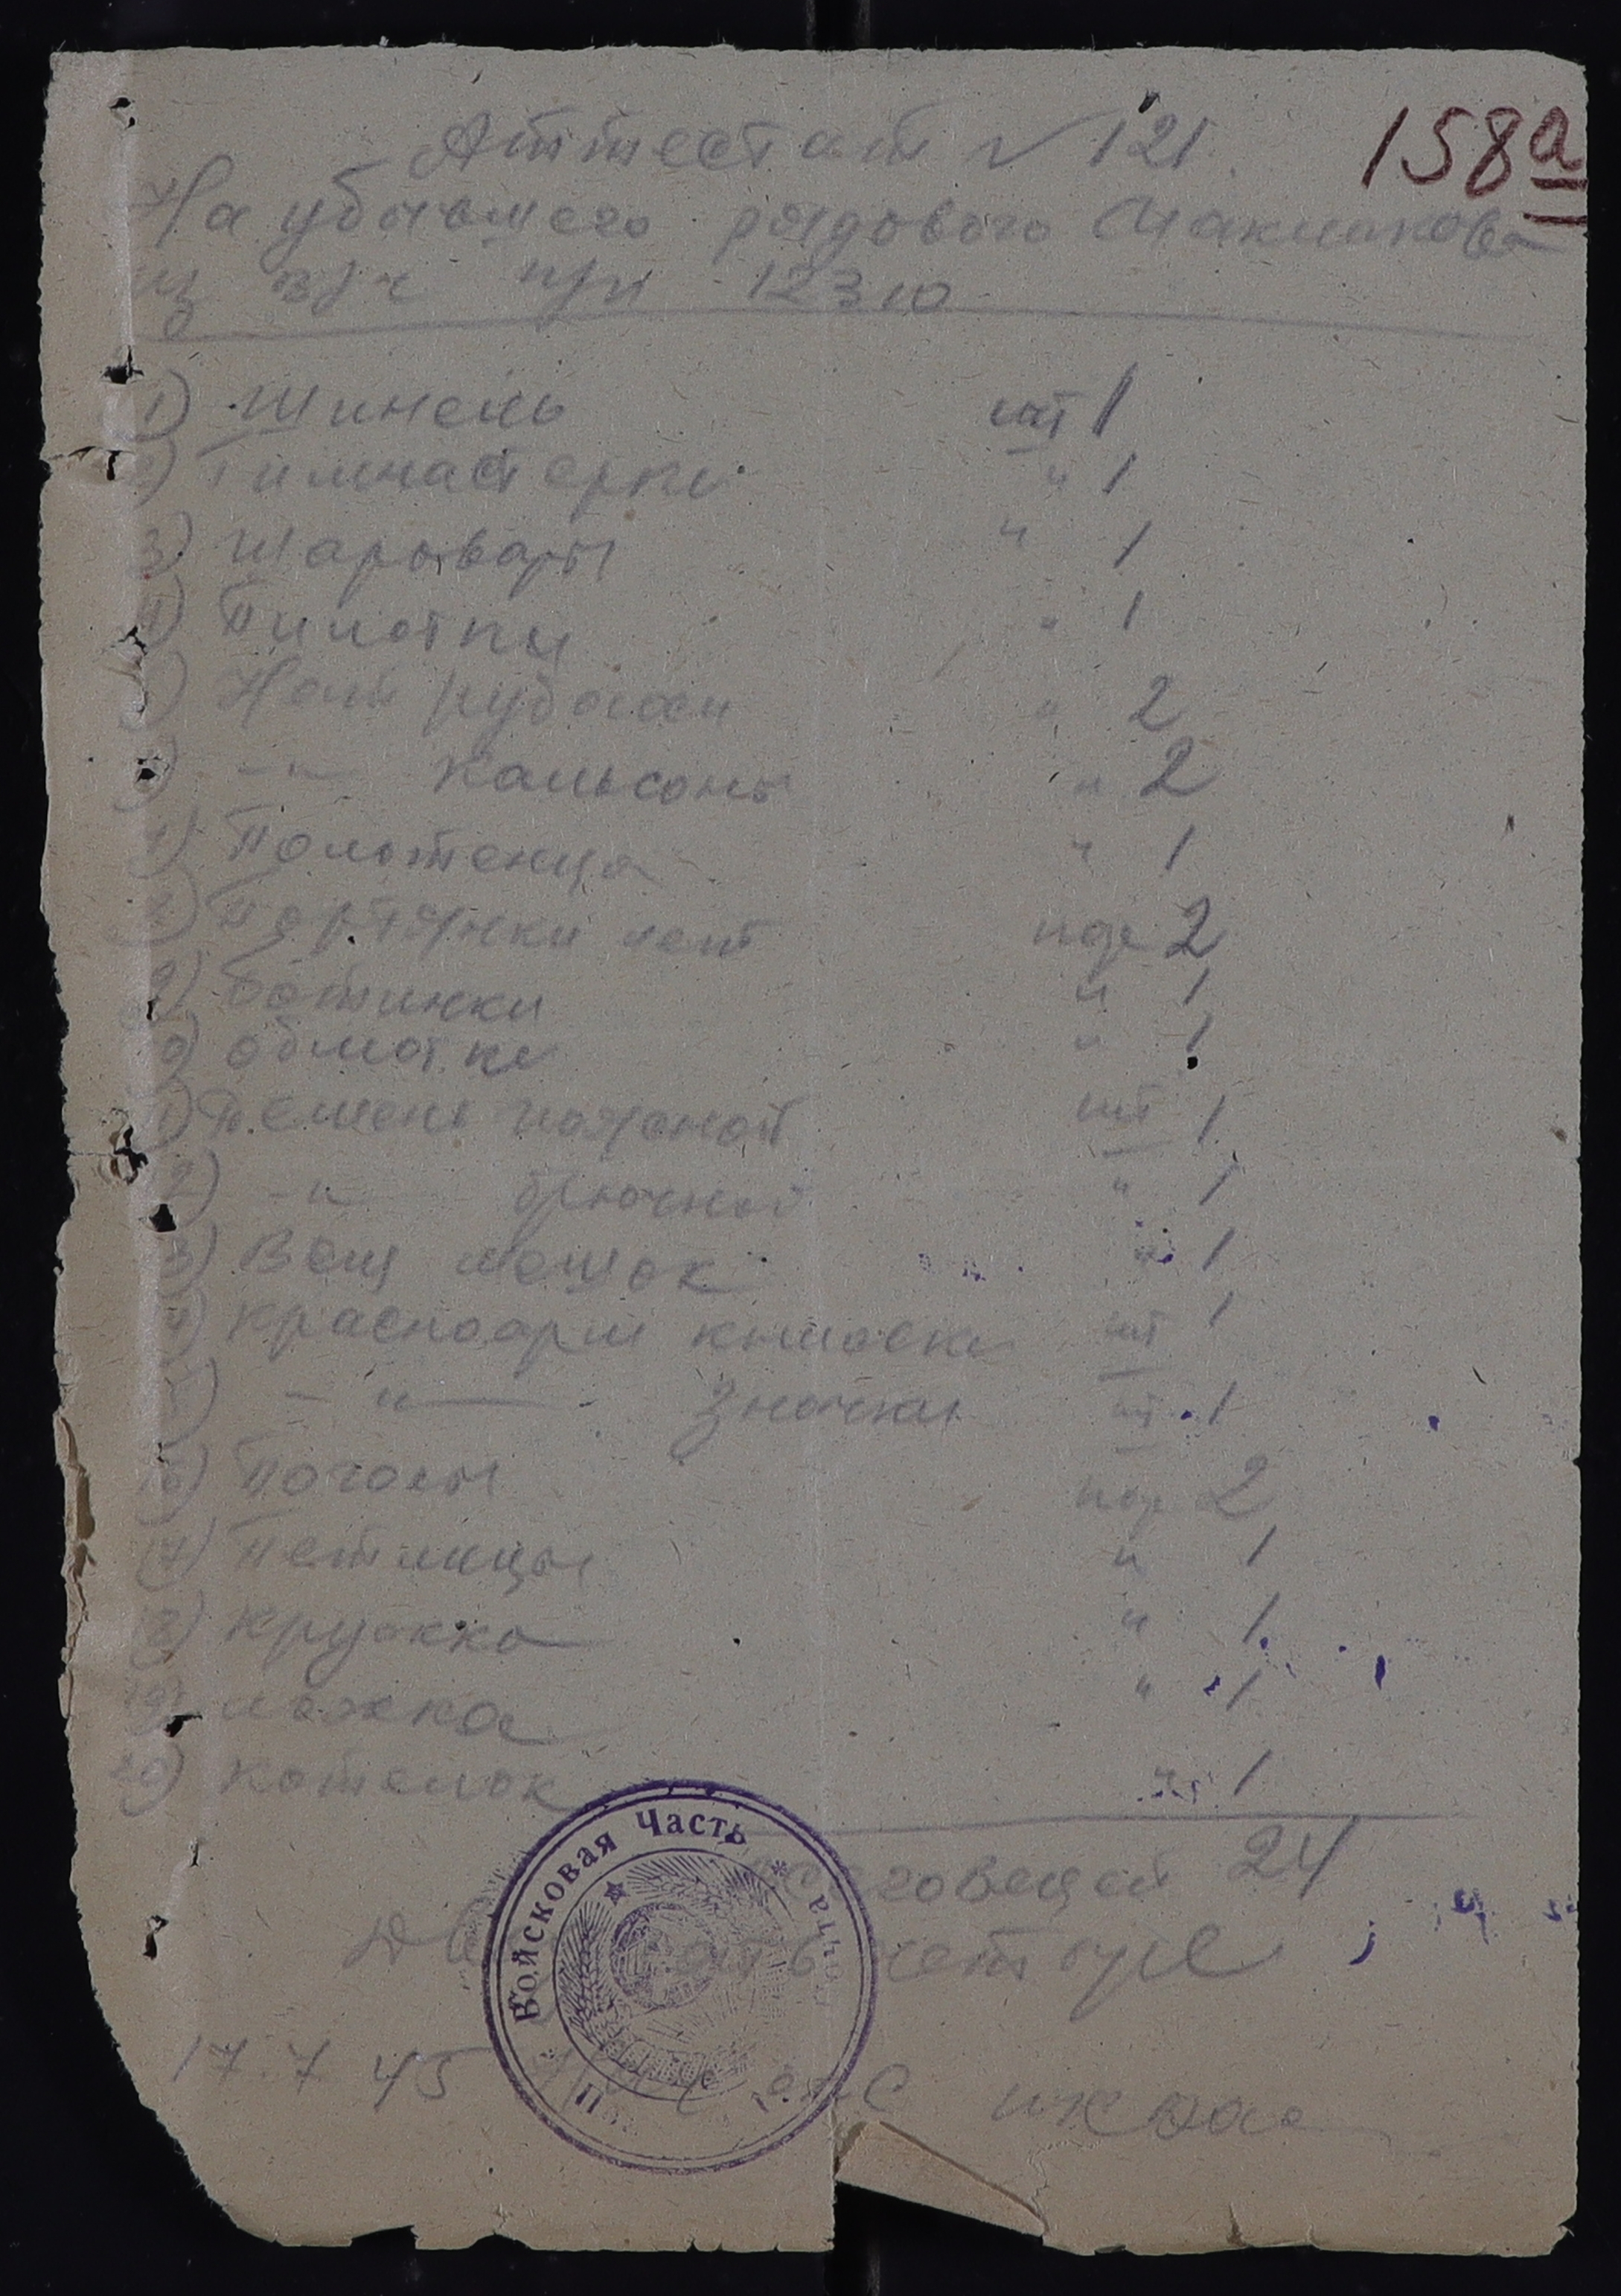 158а
Аттестат № 121
На убывшего рядового
из в/ч п/п 12310
1) Шинель шт 1
2) Гимнастерки " 1
3) Шаровары " 1
4) Пилотки " 1
5) Нат рубахи " 2
6) -"- Кальсоны " 2
7) Полотенца " 1
8) Портянки лет пар 2
9) Ботинки " 1
0) обмотки " 1
1) Ремень поясной шт 1
2) -"- брючной " 1
3) Вещ мешок " 1
4) красноарм книжски шт 1
5) -"- значки шт 1
16) Погоны пар 2
17) Петлицы " 1
18) кружка " 1
19) ложка " 1
20) котелок " 1
вещей 24
четыре
17.7.45
Войсковая Часть